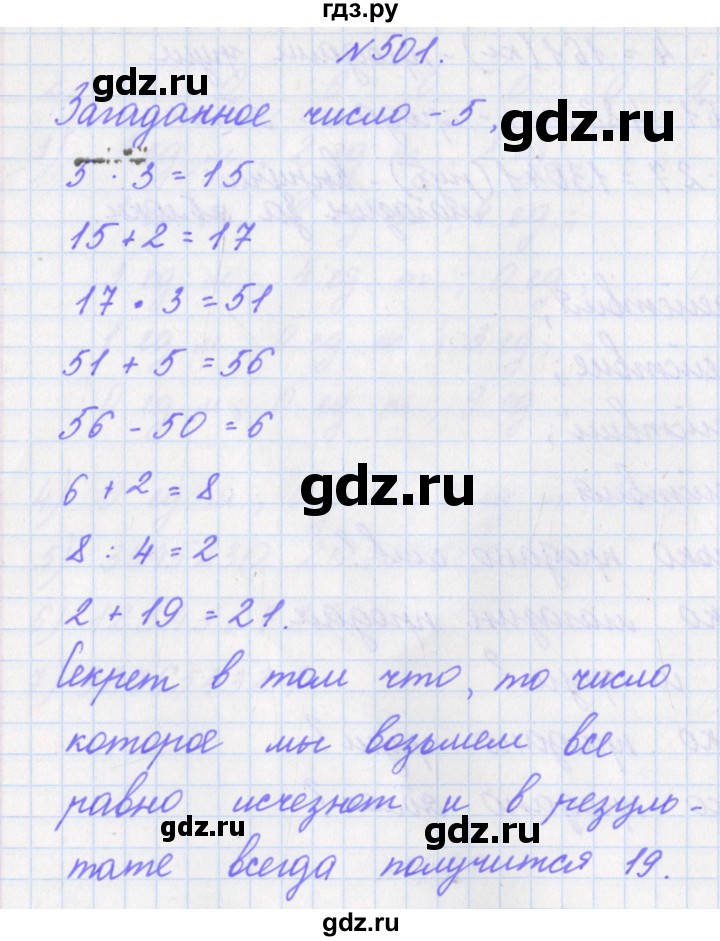 гдз.ру
№501.
Загаданное число - 5,
5 · 3 = 15
15 + 2 = 17
17 · 3 = 51
51 + 5 = 56
56 - 50 = 6
6 + 2 = 8
gdz.ru
8 : 4 = 2
2 + 19 = 21.
Секрет в том что, то число
которое мы возьмем все
равно исчезнют и в резуль-
gdz.ru
gdz.ru
тате всегда получится 19.
gdz.ru